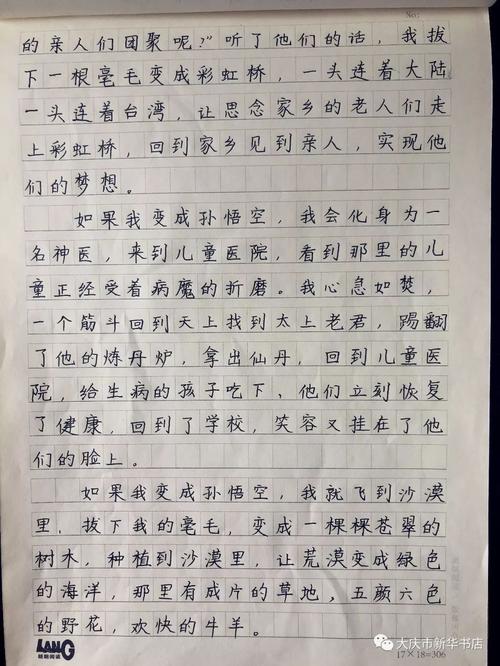 No:
的亲人们团聚呢?”听了他们的话，我拔
下一根毫毛变成彩虹桥，一头连着大陆
一头连着台湾，让思念家乡的老人们走
上彩虹桥，回到家乡见到亲人，实现他
们的梦想。
如果我变成孙悟空，我会化身为一
名神医，来到儿童医院，看到那里的儿
童正经受着病魔的折磨。我心急如焚，
一个筋斗回到天上找到太上老君，踢翻
了他的炼丹炉，拿出仙丹，回到儿童医
院，给生病的孩子吃下，他们立刻恢复
了健康，回到了学校，笑容又挂在了他
们的脸上。
如果我变成孙悟空，我就飞到沙漠
里，拔下我的毫毛，变成一棵棵苍翠的
树木，种植到沙漠里，让荒漠变成绿色
的海洋，那里有成片的草地，五颜六色
的野花，欢快的牛羊。
LANG
朗朗阅读
大庆市新华书店
17×18=306